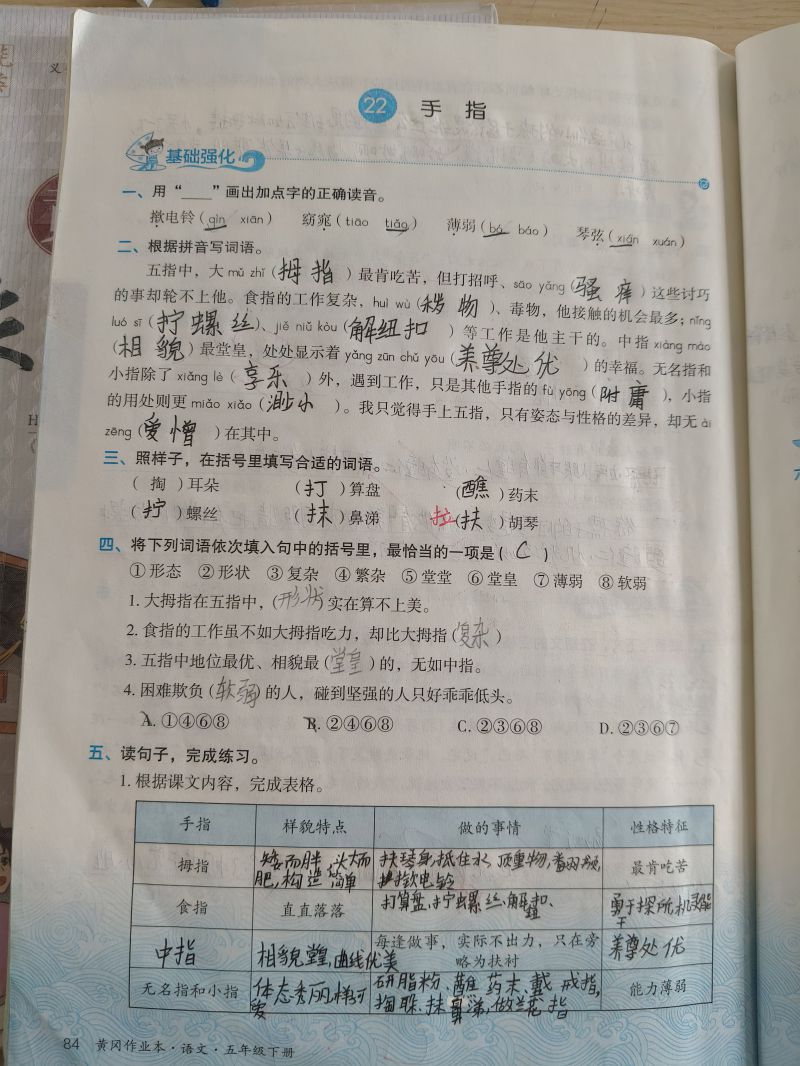 22 手 指
基础强化
一、用“____”画出加点字的正确读音。
揿电铃(qìn xiān) 窈窕(tiāo tiǎo) 薄弱(bó báo) 琴弦(xián xuán)
二、根据拼音写词语。
五指中，大 mǔ zhǐ(拇 指)最肯吃苦，但打招呼、sāo yǎng(骚 痒)这些讨巧
的事却轮不上他。食指的工作复杂，huì wù(秽 物)、毒物，他接触的机会最多；nǐng
luó sī(拧 螺 丝)、jiě niǔ kòu(解纽扣)等工作是他主干的。中指 xiàng mào
(相 貌)最堂皇，处处显示着 yǎng zūn chǔ yōu(养尊处优)的幸福。无名指和
小指除了 xiǎng lè(享乐)外，遇到工作，只是其他手指的 fù yōng(附庸)，小指
的用处则更 miǎo xiǎo(渺小)。我只觉得手上五指，只有姿态与性格的差异，却无 ài
zēng(爱 憎)在其中。
三、照样子，在括号里填写合适的词语。
(掏)耳朵 (打)算盘 (醮)药末
(拧)螺丝 (抹)鼻涕 拉(扶)胡琴
四、将下列词语依次填入句中的括号里，最恰当的一项是(C)
①形态 ②形状 ③复杂 ④繁杂 ⑤堂堂 ⑥堂皇 ⑦薄弱 ⑧软弱
1. 大拇指在五指中，(形状)实在算不上美。
2. 食指的工作虽不如大拇指吃力，却比大拇指(复杂)
3. 五指中地位最优、相貌最(堂皇)的，无如中指。
4. 困难欺负(软弱)的人，碰到坚强的人只好乖乖低头。
A. ①④⑥⑧ B. ②④⑥⑧ C. ②③⑥⑧ D. ②③⑥⑦
五、读句子，完成练习。
1. 根据课文内容，完成表格。
手指 样貌特点 做的事情 性格特征
拇指 矮而胖，头大而肥，构造简单 扶琴身，抵住水，顶重物， 最肯吃苦
食指 直直落落 打算盘、拧螺丝、解纽扣、
中指 相貌堂皇，曲线优美 每逢做事，实际不出力，只在旁略为扶衬 养尊处优
无名指和小指 体态秀丽，样子可爱 研脂粉、蘸药末、戴戒指，掏耳朵、抹鼻涕，做兰花指 能力薄弱
84 黄冈作业本·语文·五年级下册